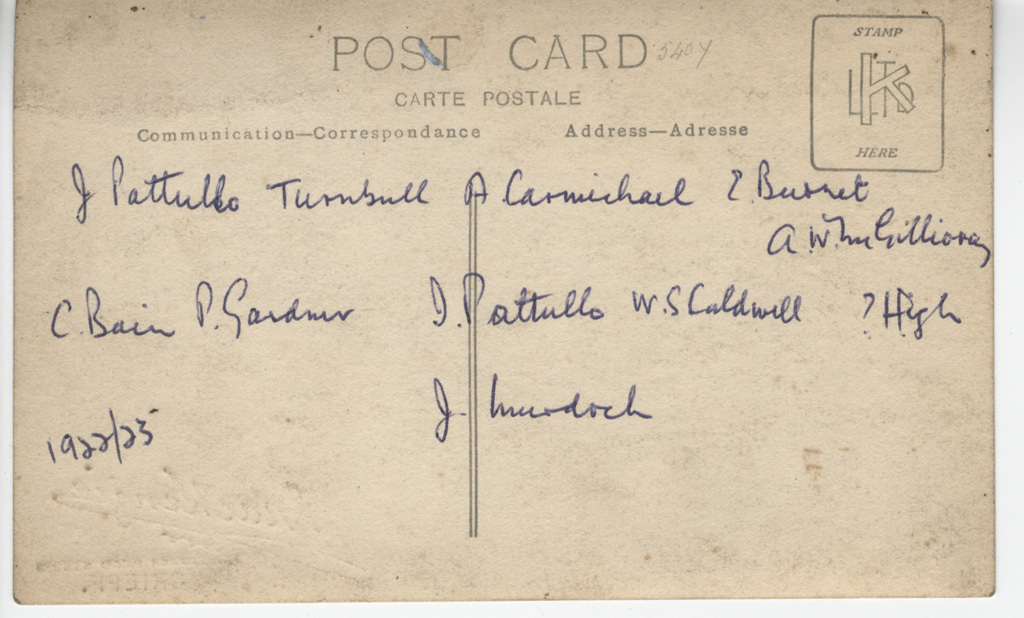 POST CARD 5404
CARTE POSTALE
Communication—Correspondance Address—Adresse
STAMP
KLTD
HERE
J Pattullo Turnbull A Carmichael ? Burnet
A. W. McGillivray
C. Bain P. Gardner I. Pattullo W. S Caldwell ? High
J. Murdoch
1922/23
CRIEFF